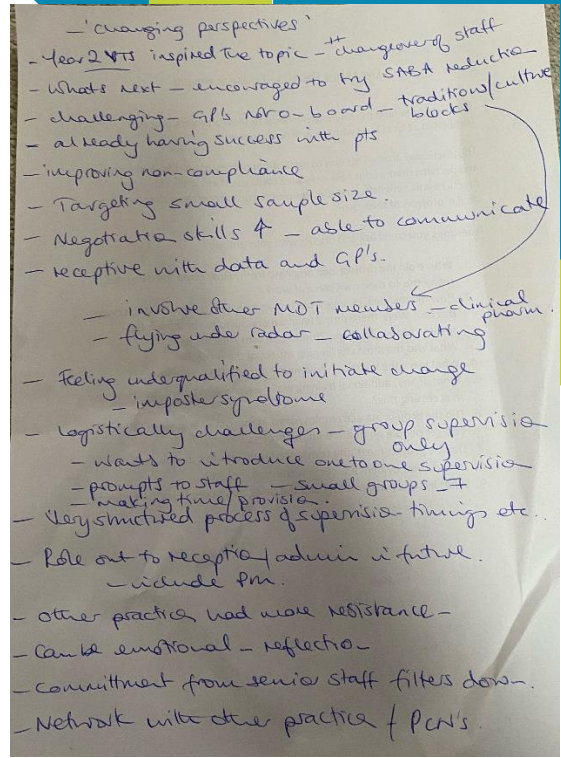 - 'changing perspectives'
- Year 2 VTS inspired the topic - ++ changeover of staff
- Whats next - encouraged to try SABA reduction
- challenging - GP's not on board - traditions/culture
blocks
- already having success with pts
- improving non-compliance
- Targeting small sample size.
- Negotiation skills ↑ - able to communicate
- receptive with data and GP's.
- involve other MDT members - clinical
pharm.
- flying under radar - collaborating
- Feeling underqualified to initiate change
- imposter syndrome
- Logistically challenges - group supervision
only
- wants to introduce one to one supervision
- prompts to staff - small groups - 7
- making time/provision.
- Very structured process of supervision timings etc.
- Role out to reception/admin in future.
- include PM.
- other practice had more resistance -
- Can be emotional - reflection
- Committment from senior staff filters down.
- Network with other practice / PCN's.